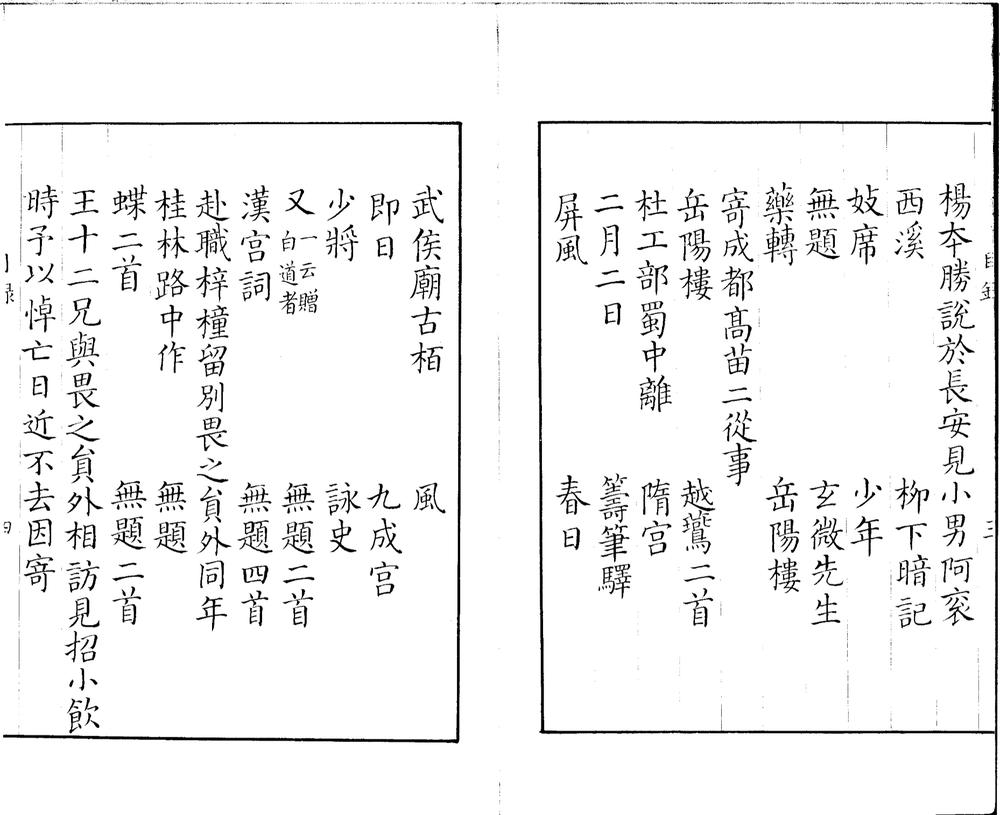 楊本勝說於長安見小男阿衮
西溪 柳下暗記
妓席 少年
無題 玄微先生
藥轉 岳陽樓
寄成都髙苗二從事
岳陽樓 越鷰二首
杜工部蜀中離 隋宫
二月二日 籌筆驛
屏風 春日
武侯廟古栢 風
即日 九成宫
少將 詠史
又 一云贈白道者 無題二首
漢宫詞 無題四首
赴職梓橦留別畏之貟外同年
桂林路中作 無題
蝶二首 無題二首
王十二兄與畏之貟外相訪見招小飲
時予以悼亡日近不去因寄